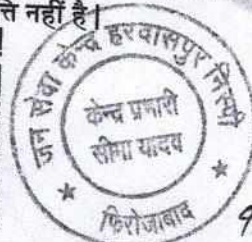 त्ति नहीं है|
जन सेवा केन्द्र हरदासपुर निस्पी
केन्द्र प्रभारी
सीमा यादव
फिरोजाबाद